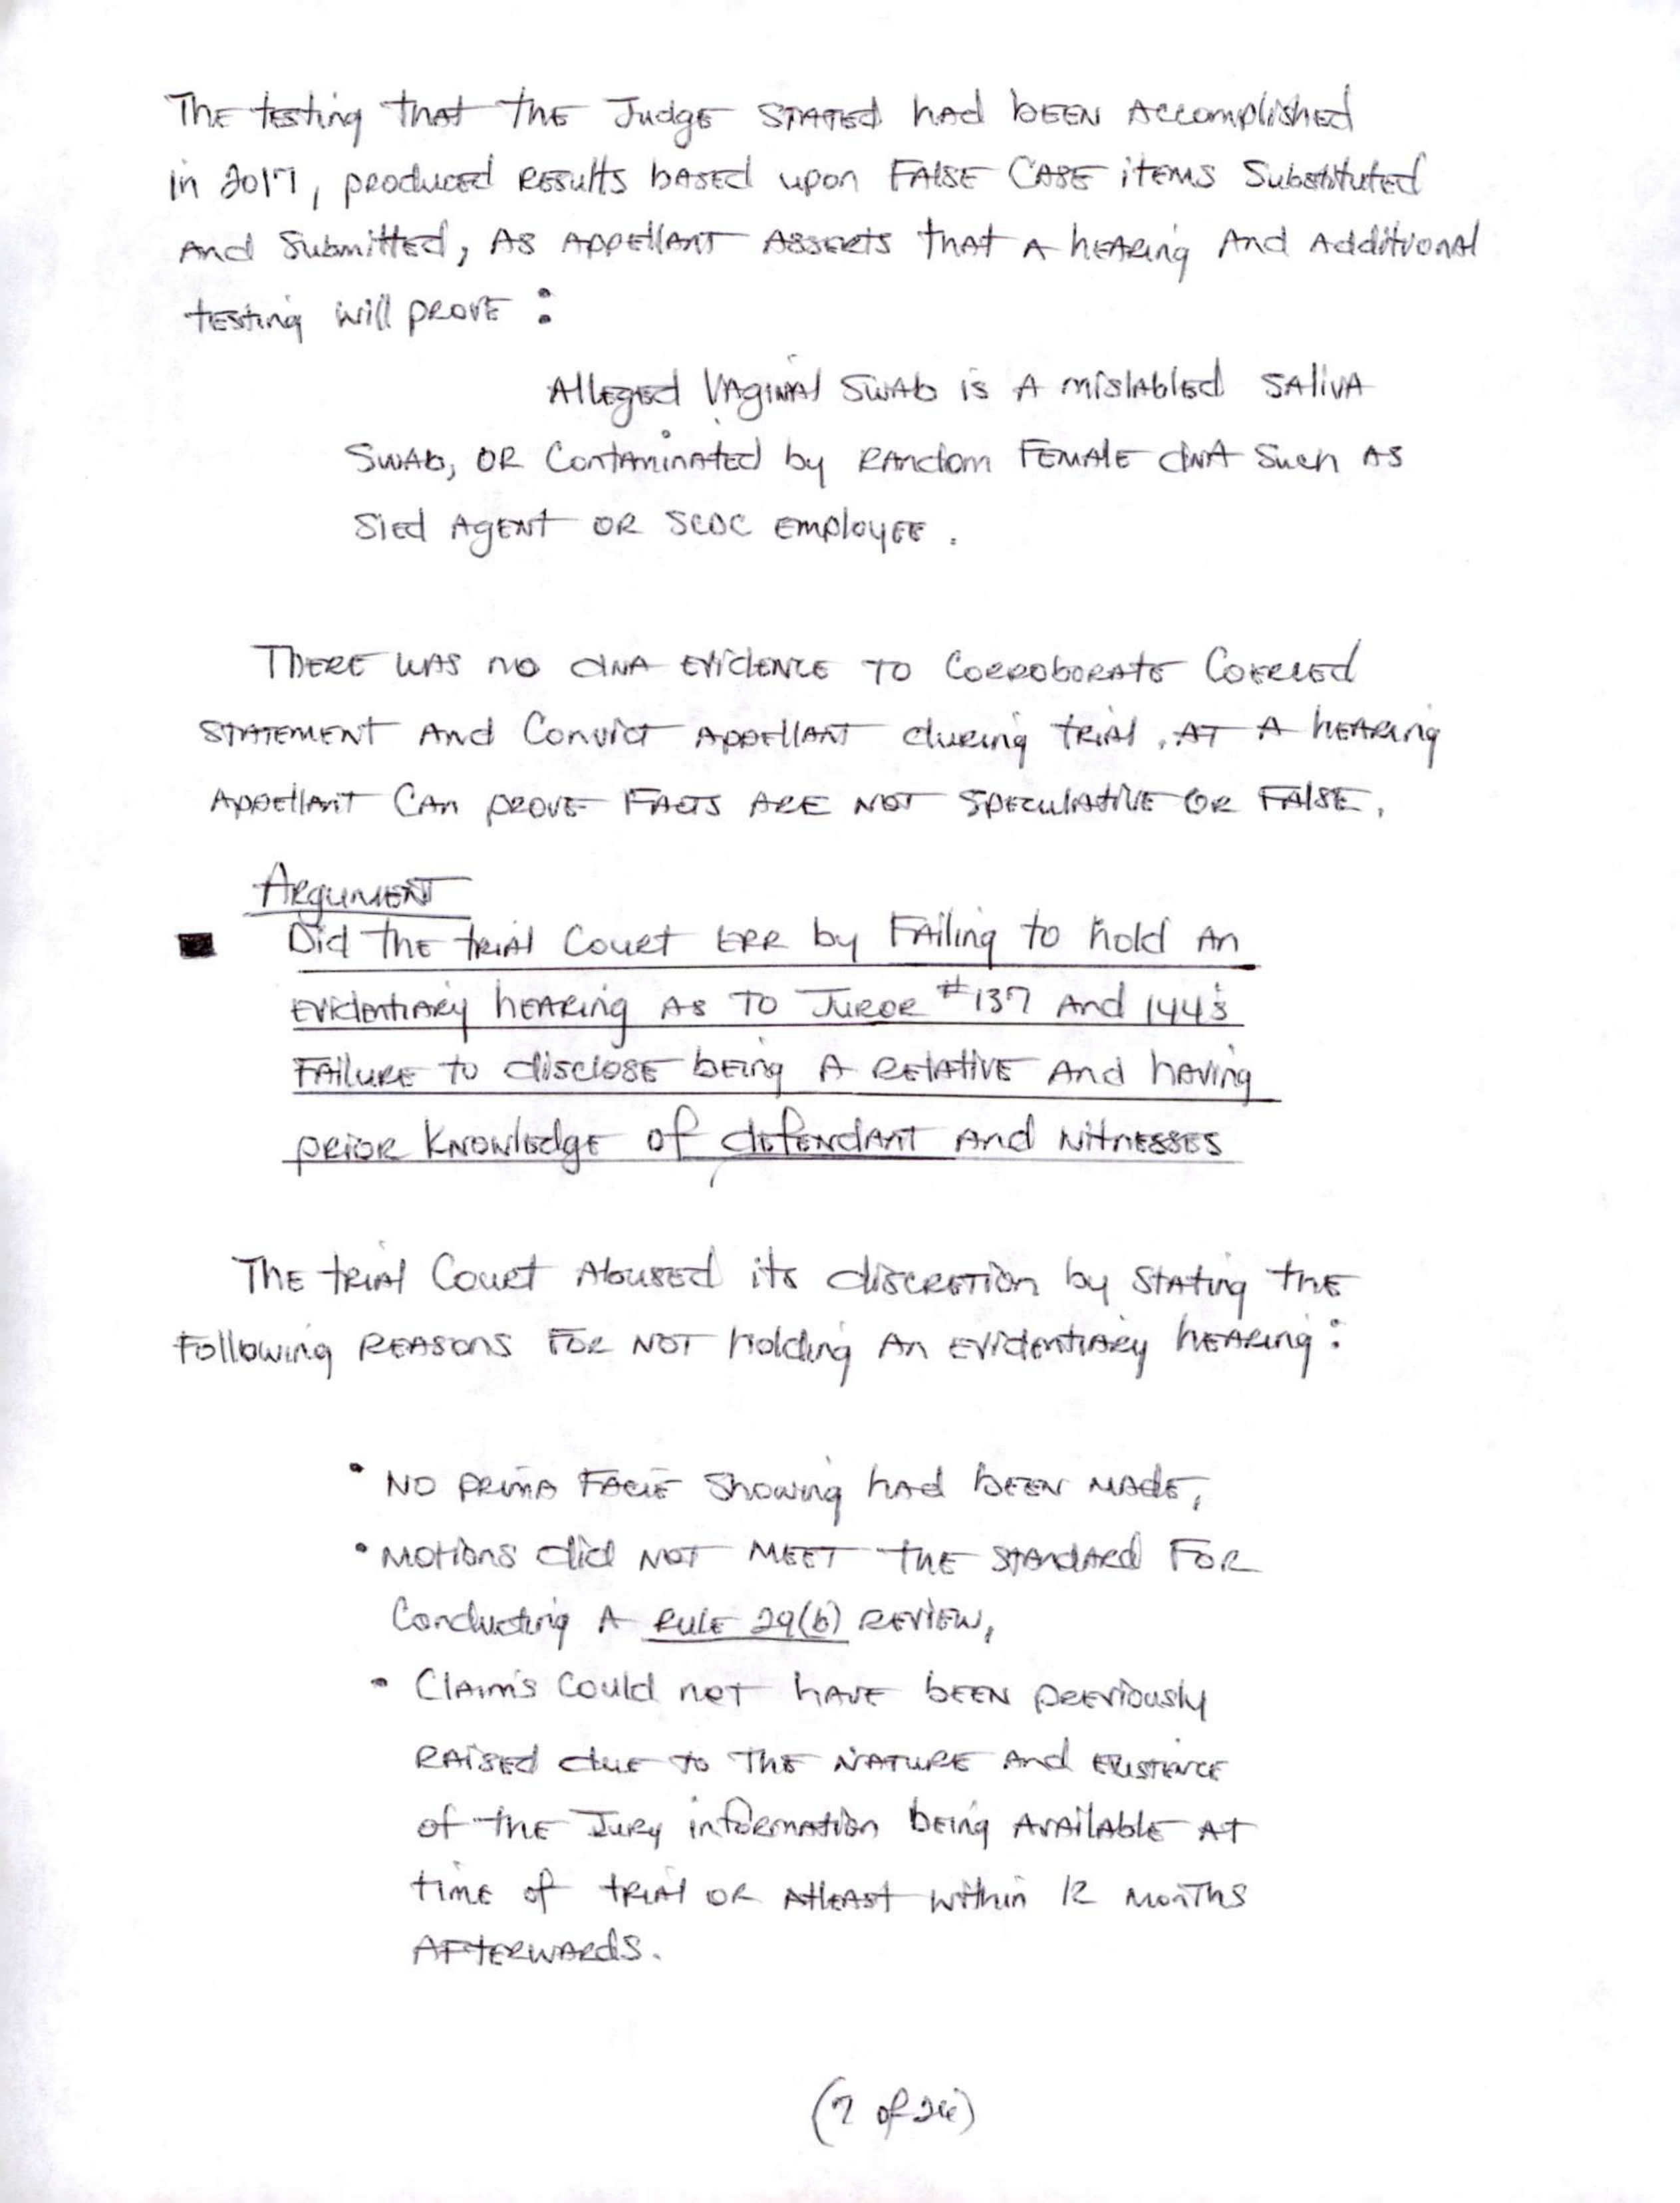 The testing that the Judge stated had been accomplished
in 2017, produced results based upon false case items substituted
and submitted, as appellant asserts that a hearing and additional
testing will prove:
Alleged vaginal swab is a mislabled saliva
swab, or contaminated by random female dna such as
Sled Agent or SCDC employee.
There was no dna evidence to corroborate coerced
statement and convict appellant during trial. At a hearing
appellant can prove facts are not speculative or false.
Argument
Did the trial court err by failing to hold an
evidentiary hearing as to Juror #137 and 144's
failure to disclose being a relative and having
prior knowledge of defendant and witnesses
The trial court abused its discretion by stating the
following reasons for not holding an evidentiary hearing:
• No prima facie showing had been made,
• Motions did not meet the standard for
conducting a Rule 29(b) review,
• Claims could not have been previously
raised due to the nature and existence
of the Jury information being available at
time of trial or atleast within 12 months
afterwards.
(7 of 26)